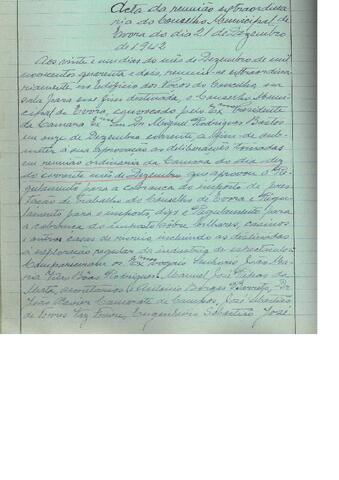 Acta da reunião extraordina-
ria do Conselho Municipal de
Evora do dia 21 de Dezembro
de 1942
Aos vinte e um dias do mês de Dezembro de mil
novecentos quarenta e dois, reuniu-se extraordina-
riamente no edificio dos Paços do Concelho em
sala para esse fim destinada, o Conselho Muni-
cipal de Evora, convocado pelo Exmo Presidente
da Camara Exmo Snr. Dr. Miguel Rodrigues Bastos
em onze de Dezembro corrente, a fim de sub-
meter á sua aprovação as deliberações tomadas
em reunião ordinaria da Camara do dia dez
do corrente mês de Dezembro, que aprovou o Re-
gulamento para a cobrança do imposto de pres-
tação de trabalho do Concelho de Evora e Regu-
lamento para o imposto, digo e Regulamento para
a cobrança do imposto sobre bilhares, casinos
e outras casas de recreio incluindo as destinadas
á exploração regular da industria de espectaculos
Compareceram os Exmos Vogais Senhores João Ma-
ria Vilas Bôas Rodrigues, Manuel José
Mata, secretarios e Antonio Borges Barreto, Dr.
João Xavier Camarate de Campos, José Sebastião
de Torres Vaz Freire, Engenheiro Sebastião José